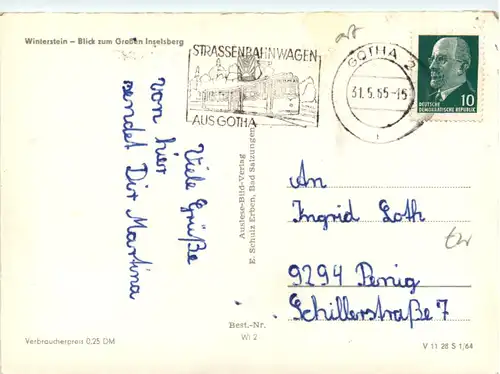 Winterstein – Blick zum Großen Inselsberg
STRASSENBAHNWAGEN
AUS GOTHA
GOTHA 2
31.5.65-15
DEUTSCHE
DEMOKRATISCHE REPUBLIK
10
Viele Grüße
von hier
sendet Dir Martina
Auslese-Bild-Verlag
E. Schulz Erben, Bad Salzungen
An
Ingrid Loth
9294 Penig
Schillerstraße 7
Best.-Nr.
Wi 2
Verbraucherpreis 0,25 DM
V 11 28 S 1/64